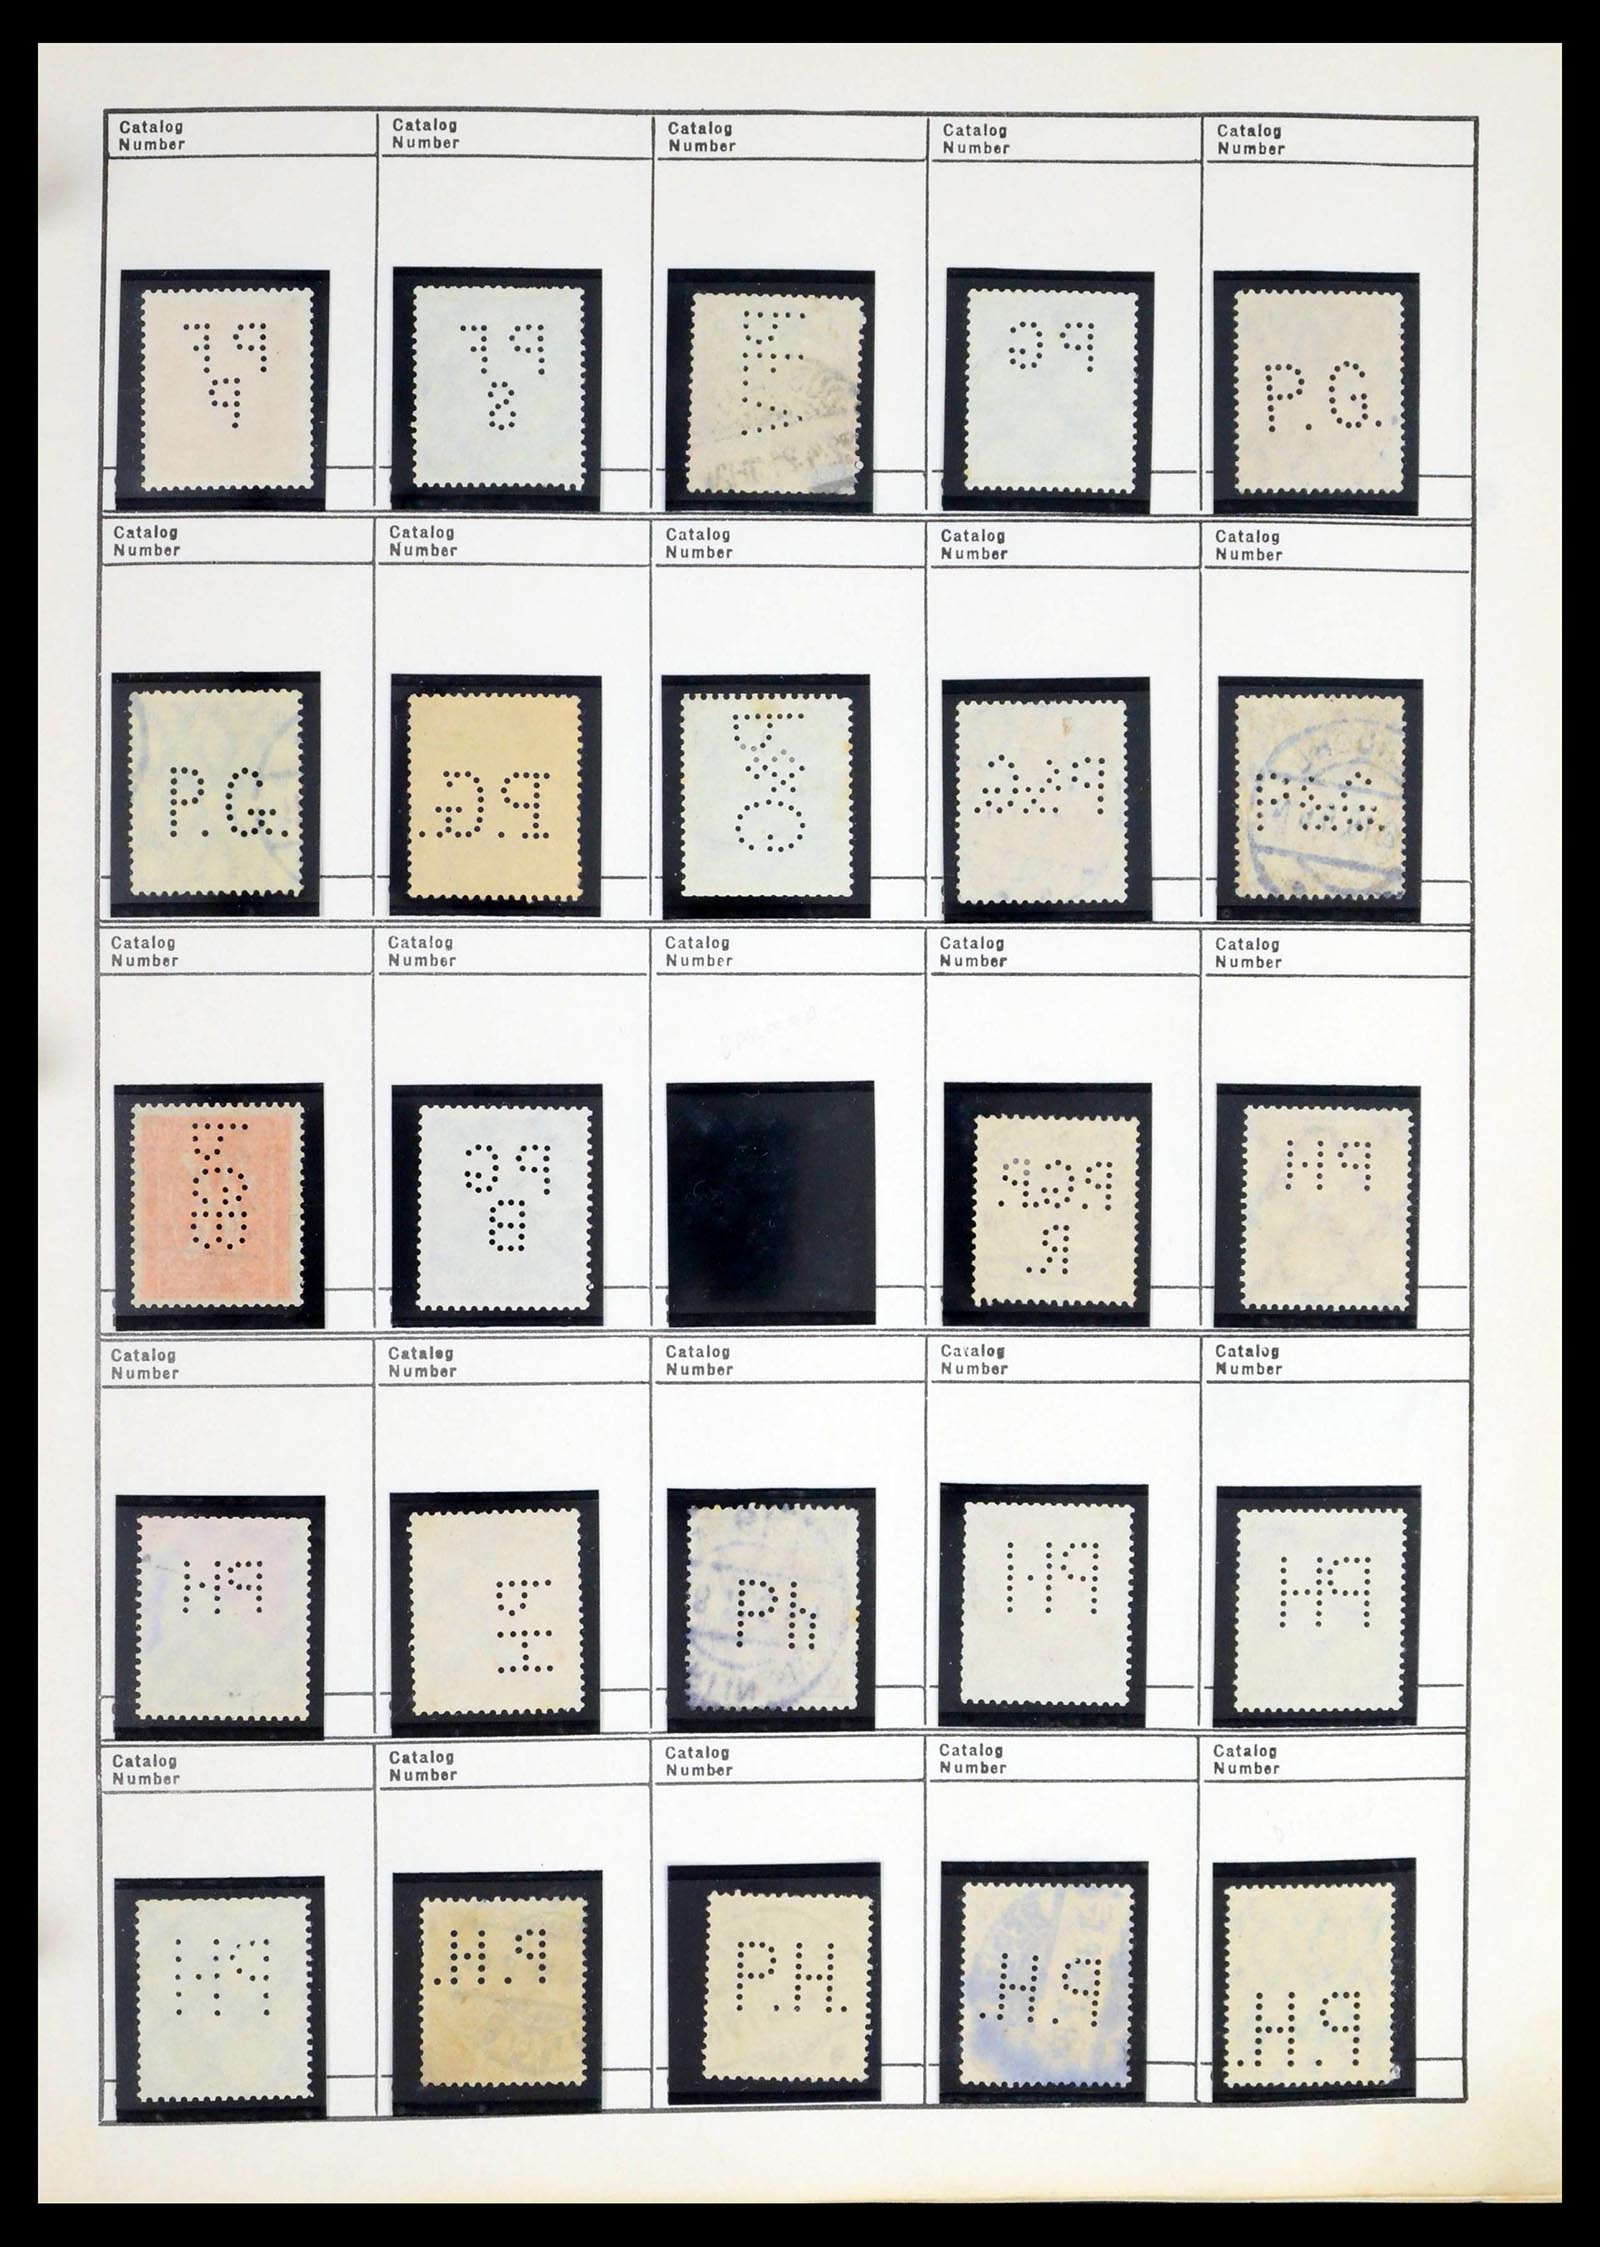 Catalog Number
Catalog Number
Catalog Number
Catalog Number
Catalog Number
PF P
PF S
PG
P.G.
Catalog Number
Catalog Number
Catalog Number
Catalog Number
Catalog Number
P.G.
P.G.
P&O
P&G
Catalog Number
Catalog Number
Catalog Number
Catalog Number
Catalog Number
PGB
PG B
PGP R
PH
Catalog Number
Catalog Number
Catalog Number
Catalog Number
Catalog Number
PH
PH
Ph
PH
PH
Catalog Number
Catalog Number
Catalog Number
Catalog Number
Catalog Number
PH
P.H.
P.H.
P.H.
P.H.